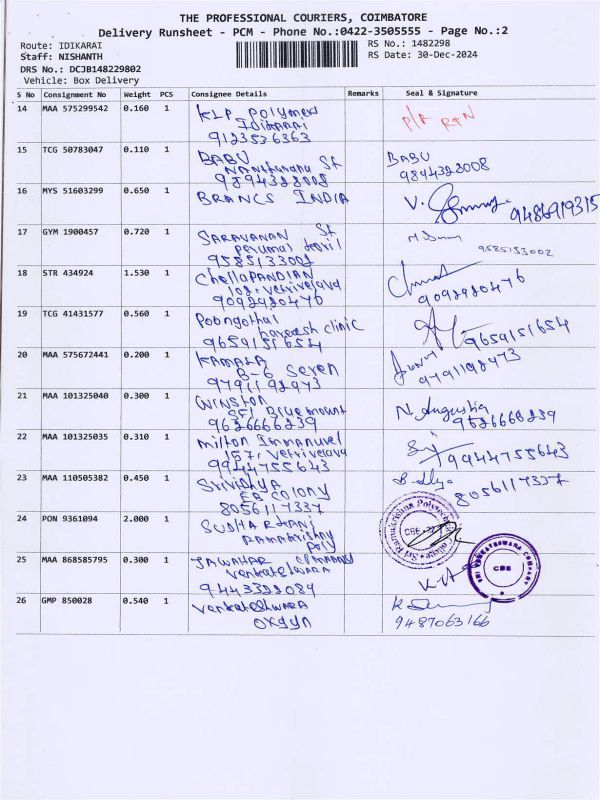 THE PROFESSIONAL COURIERS, COIMBATORE
Delivery Runsheet - PCM - Phone No.:0422-3505555 - Page No.:2
Route: IDIKARAI
Staff: NISHANTH
DRS No.: DCJB148229802
Vehicle: Box Delivery
RS No.: 1482298
RS Date: 30-Dec-2024
S No Consignment No Weight PCS Consignee Details Remarks Seal & Signature
14 MAA 575299542 0.160 1 KLP Polymers
Idikarai
9123536363
15 TCG 50783047 0.110 1 BABU BABU
St
9894328008 9894328008
16 MYS 51603299 0.650 1 BRANCS INDIA 9486919315
17 GYM 1900457 0.720 1 SARAVANAN St
Perumal
9585133002 9585133002
18 STR 434924 1.530 1 ChellaPANDIAN
9092980476 9092980476
19 TCG 41431577 0.560 1 Poongothai
clinic
9659151654 9659151654
20 MAA 575672441 0.200 1 KAMALA
B-6 Seven
9791198473 9791198473
21 MAA 101325040 0.300 1 WINSTON N. Augustia
SFI Bluemount
9626666239 9626666239
22 MAA 101325035 0.310 1 Milton Immanuvel
157, Vetrivelava
9944755643 9944755643
23 MAA 110505382 0.450 1 Srividhya
EB COLONY
8056117337 8056117337
24 PON 9361094 2.000 1 SUDHARHANI
Ramakrishna
Poly
Sri Ramakrishna Polytechnic College
CBE-22
25 MAA 868585795 0.300 1 JAWAHAR COMPANY
Venkateshwara
9443322089
SRI VENKATESWARA COMPANY
CBE
26 GMP 850028 0.540 1 Venkateshwara
Oxygyn 9487063166